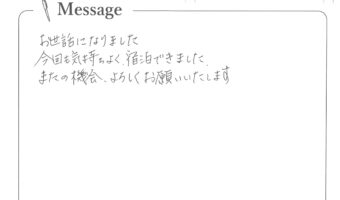 Message
お世話になりました
今回も気持ちよく宿泊できました.
またの機会、よろしくお願いいたします